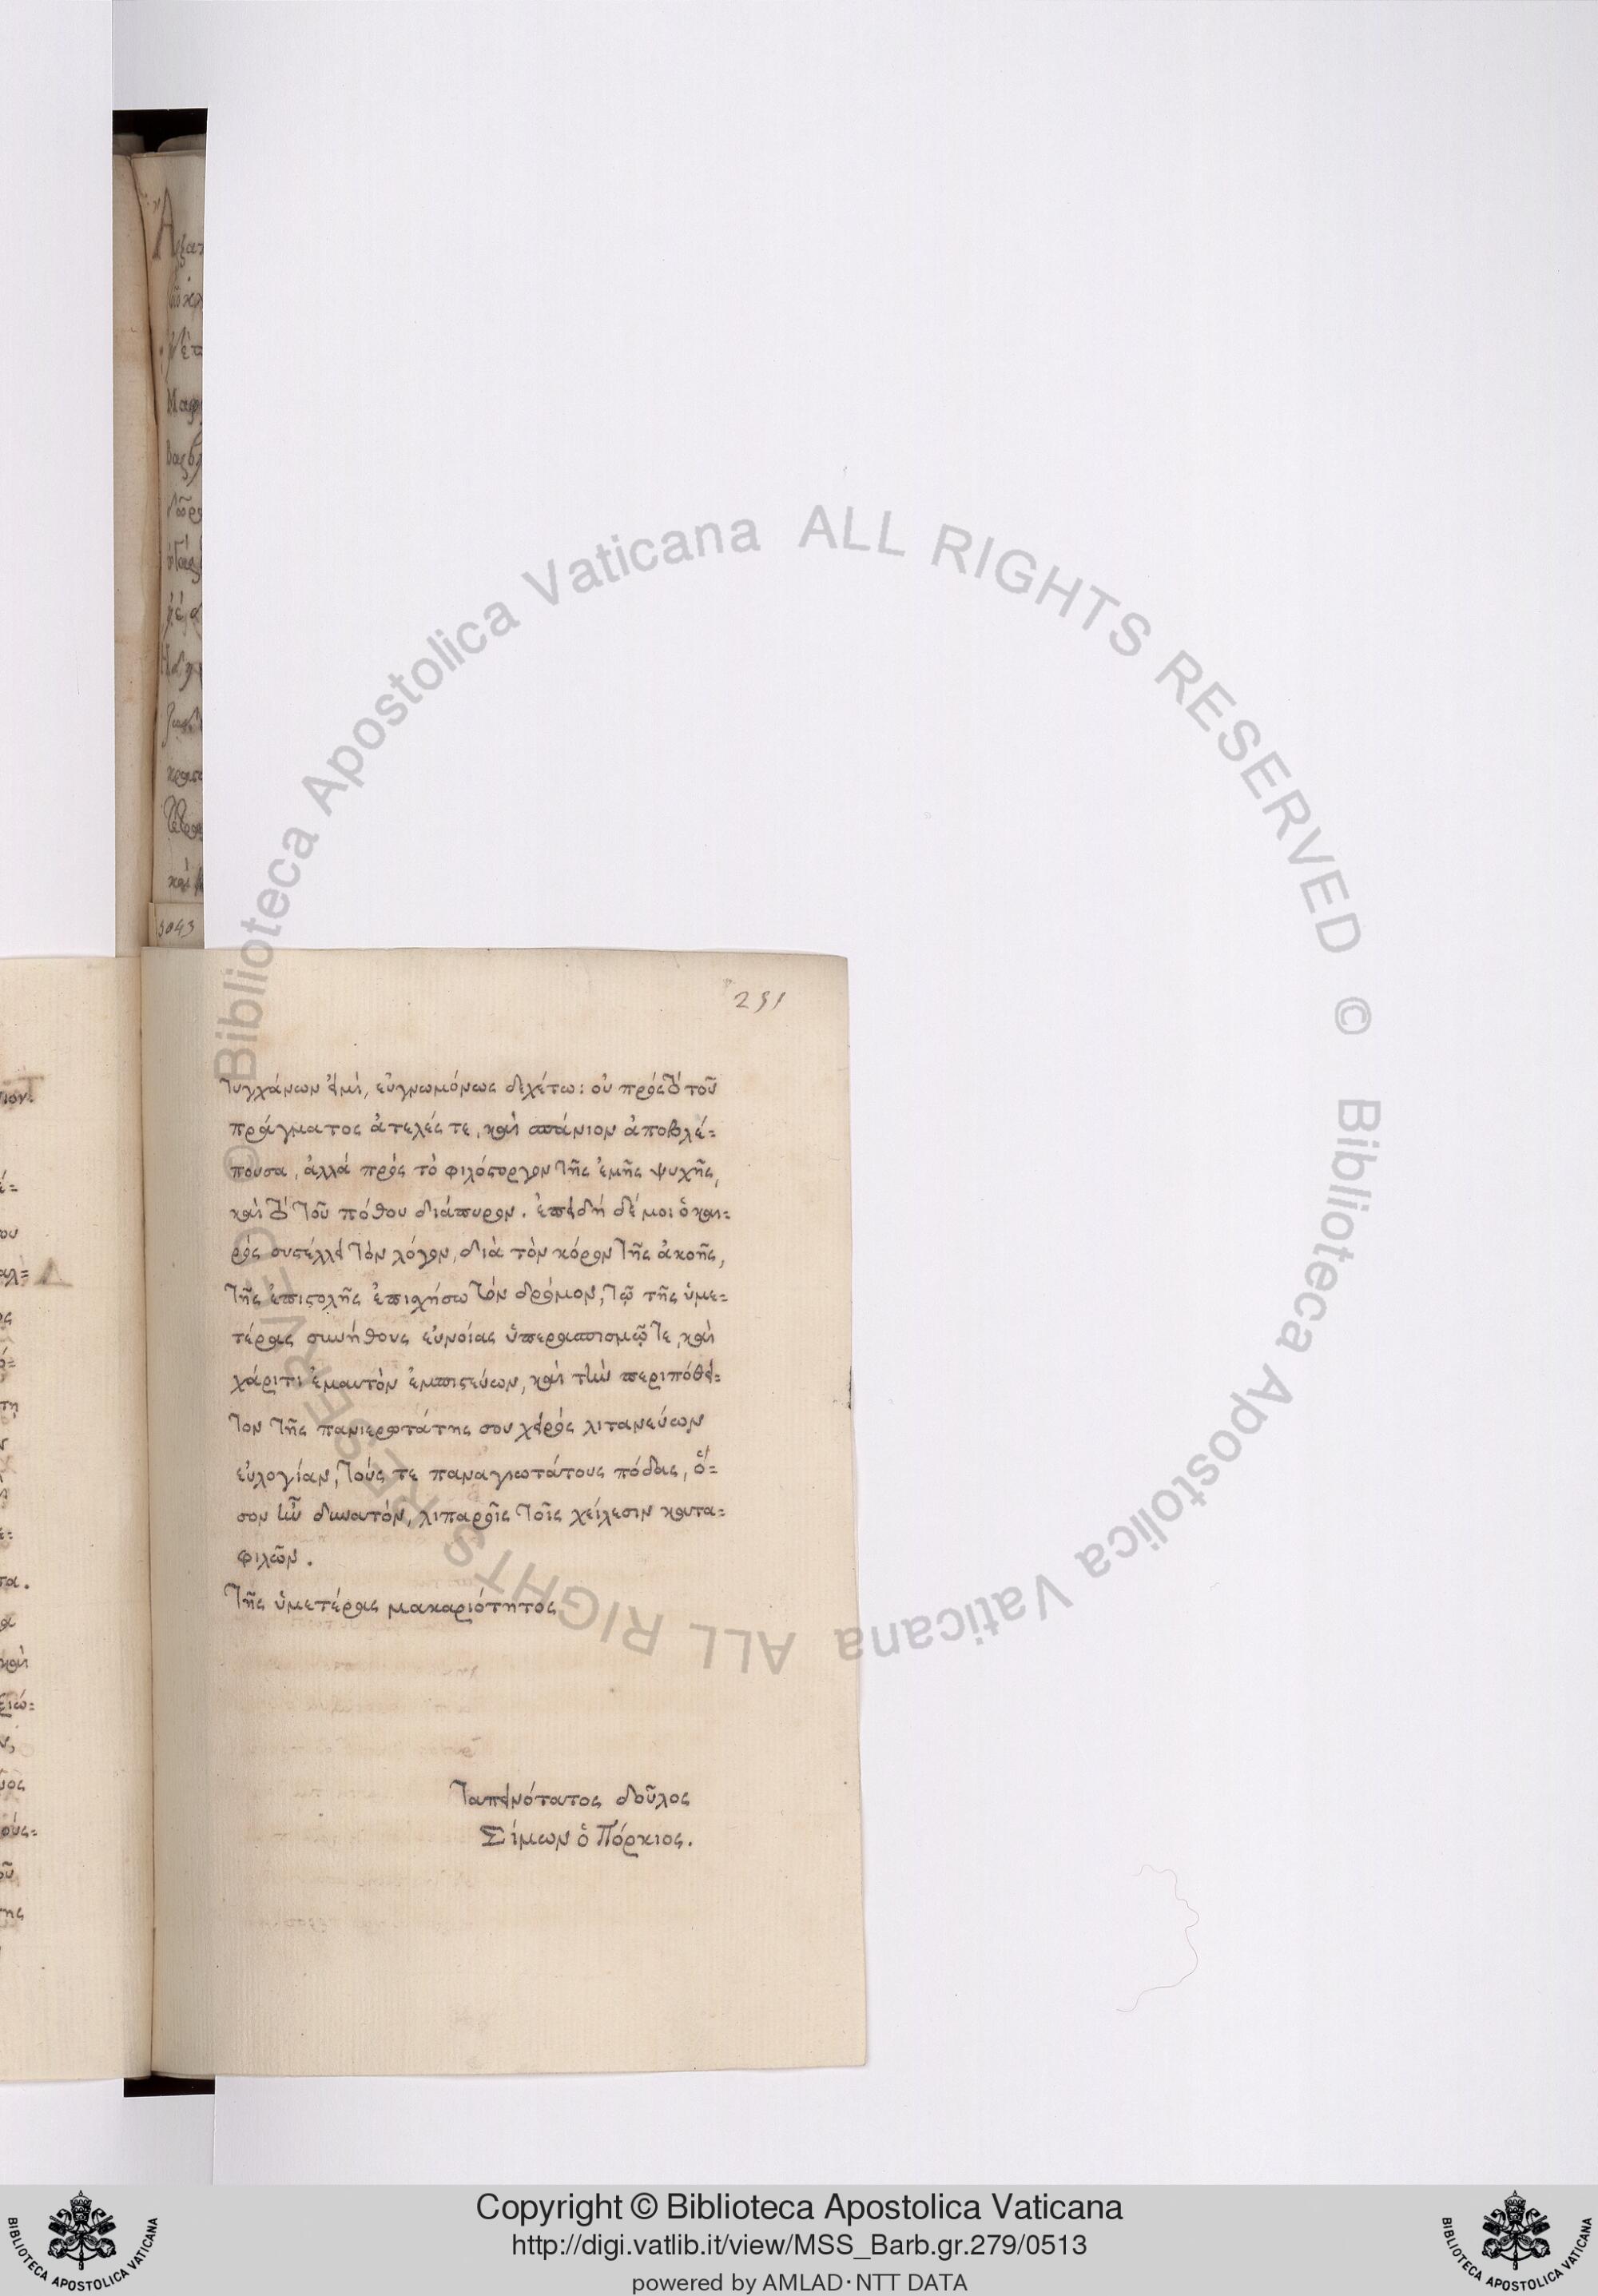 251
τυγχάνων εἰμὶ, εὐγνωμόνως δεχέτω: οὐ πρὸς τὸ τοῦ
πράγματος ἀτελές τε, καὶ σπάνιον ἀποβλέ=
πουσα, ἀλλὰ πρὸς τὸ φιλόστοργον τῆς ἐμῆς ψυχῆς,
καὶ τὸ τοῦ πόθου διάπυρον. ἐπειδὴ δέ μοι ὁ και=
ρὸς συστέλλει τὸν λόγον, διὰ τὸν κόρον τῆς ἀκοῆς,
τῆς ἐπιστολῆς ἐπισχήσω τὸν δρόμον, τῷ τῆς ὑμε=
τέρας συνήθους εὐνοίας ὑπερασπισμῷ τε, καὶ
χάριτι ἐμαυτὸν ἐμπιστεύων, καὶ τὴν περιπόθη=
τον τῆς πανιερωτάτης σου χειρὸς λιτανεύων
εὐλογίαν, τούς τε παναγιωτάτους πόδας, ὅ=
σον ἦν δυνατὸν, λιπαροῖς τοῖς χείλεσιν κατα=
φιλῶν.
τῆς ὑμετέρας μακαριότητος
ταπεινότατος δοῦλος
Σίμων ὁ Πόρκιος.
3043
© Biblioteca Apostolica Vaticana ALL RIGHTS RESERVED © Biblioteca Apostolica Vaticana ALL RIGHTS RESERVED
BIBLIOTECA APOSTOLICA VATICANA
Copyright © Biblioteca Apostolica Vaticana
http://digi.vatlib.it/view/MSS_Barb.gr.279/0513
powered by AMLAD·NTT DATA
BIBLIOTECA APOSTOLICA VATICANA